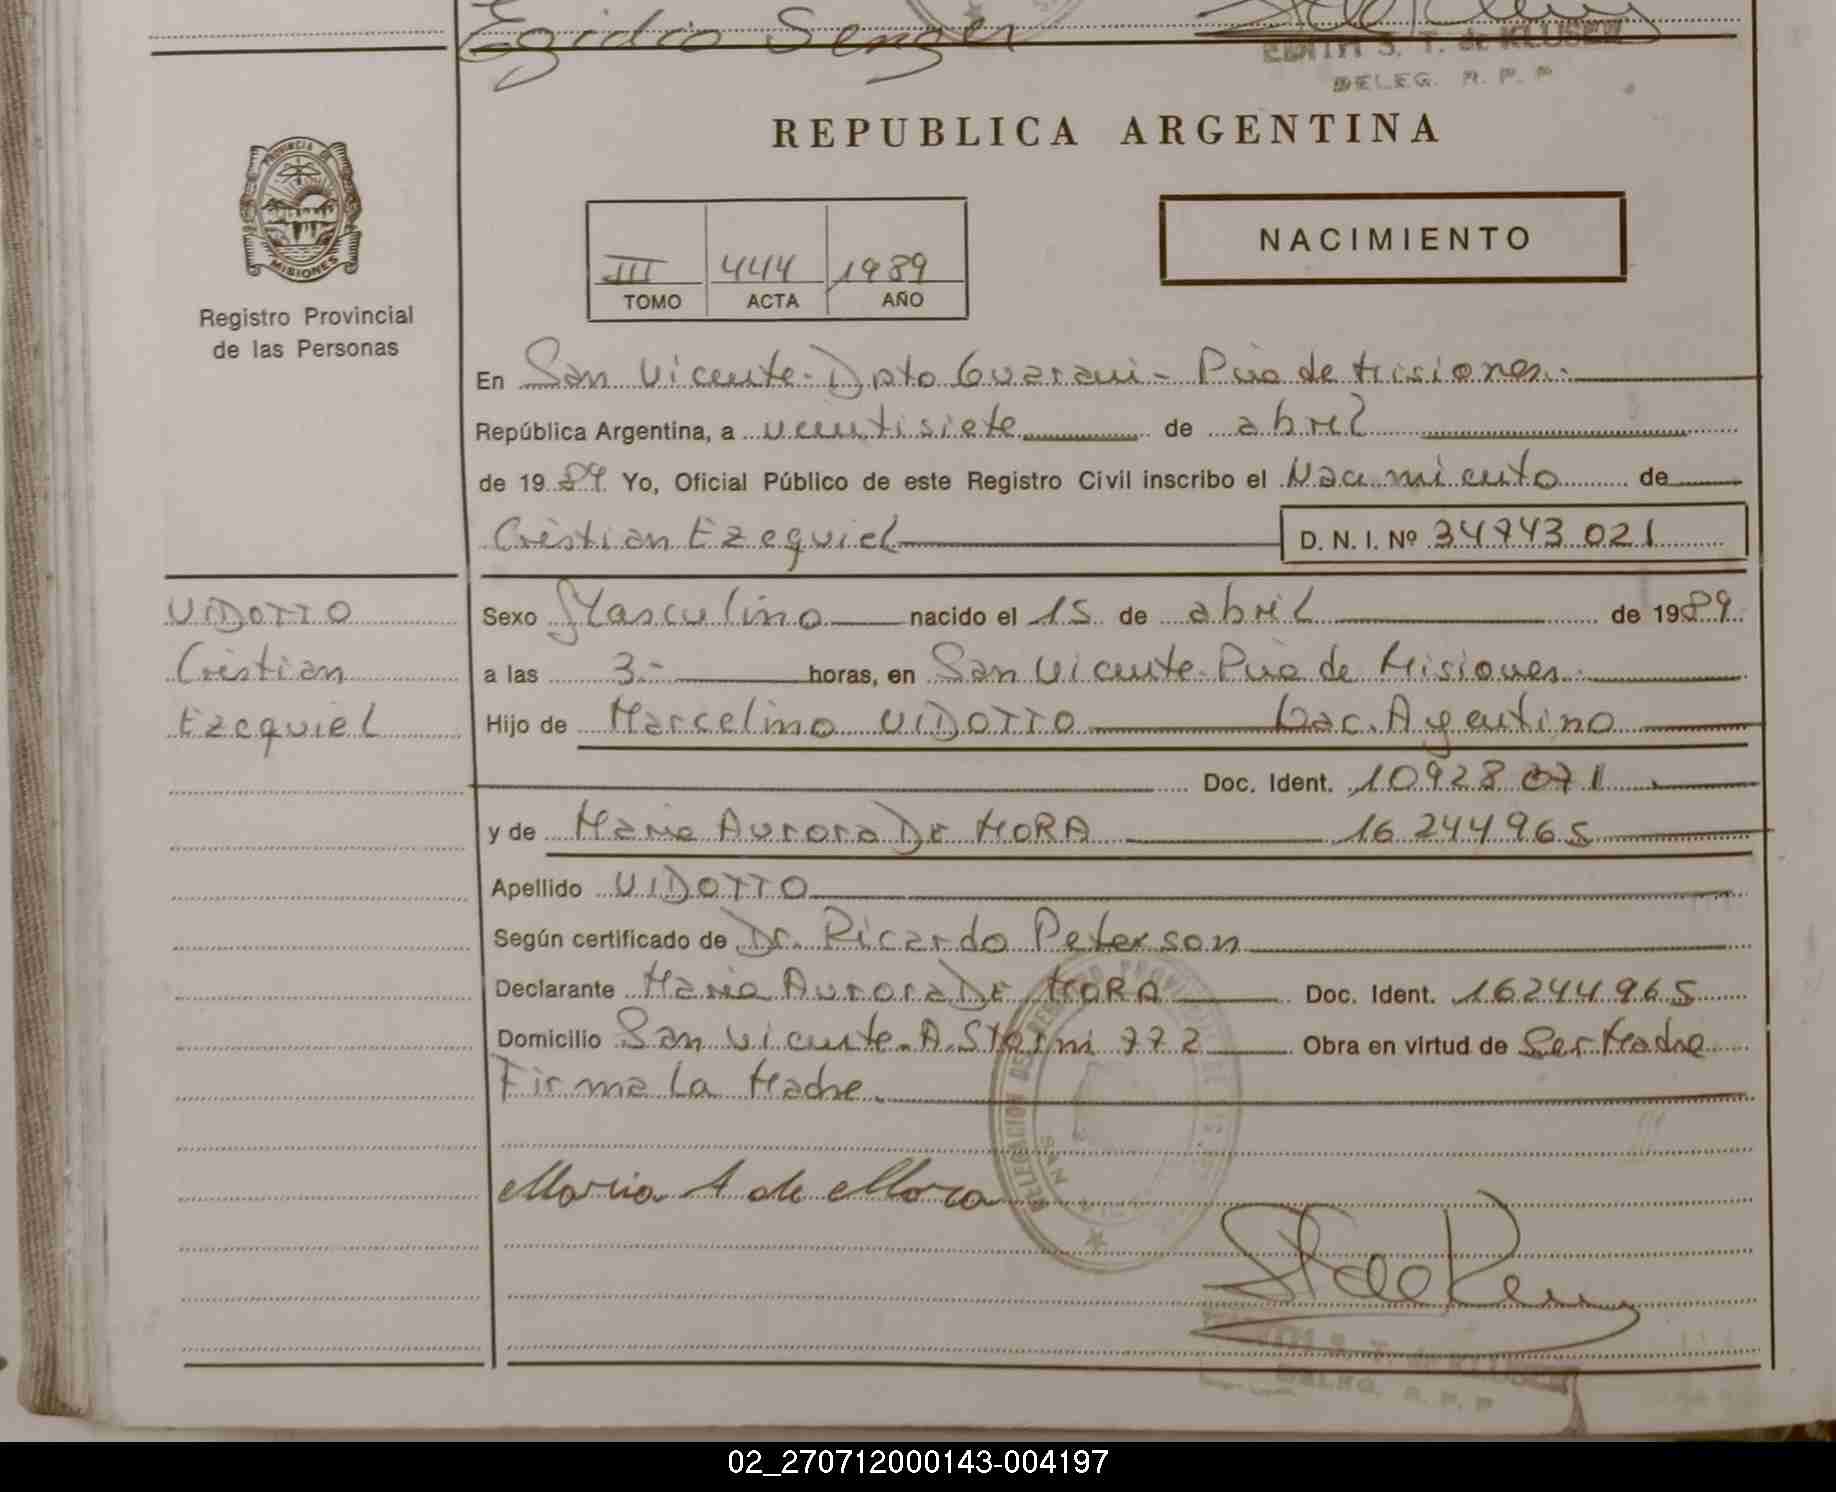 Egidio Senger
EDITH S. T. de KLUSER
DELEG. R. P. P.
REPUBLICA ARGENTINA
PROVINCIA DE
MISIONES
Registro Provincial
de las Personas
III 444 1989
TOMO ACTA AÑO
NACIMIENTO
En San Vicente-Dpto Guarani- Pcia de Misiones.-
República Argentina, a veintisiete de abril
de 1989 Yo, Oficial Público de este Registro Civil inscribo el Nacimiento de
Cristian Ezequiel D. N. I. Nº 34743 021
VIDOTTO
Cristian
Ezequiel
Sexo Masculino nacido el 15 de abril de 1989
a las 3.- horas, en San Vicente-Pcia de Misiones.-
Hijo de Marcelino VIDOTTO Nac. Argentino
Doc. Ident. 10928 071
y de Maria Aurora DE MORA 16 244 965
Apellido VIDOTTO
Según certificado de Dr. Ricardo Peterson
Declarante Maria Aurora DE MORA Doc. Ident. 16244965
Domicilio San Vicente-A.Storni 772 Obra en virtud de Ser Madre
Firma la Madre.
Maria A de Mora
EDITH S. T. de KLUSER
DELEG. R. P. P
02_270712000143-004197